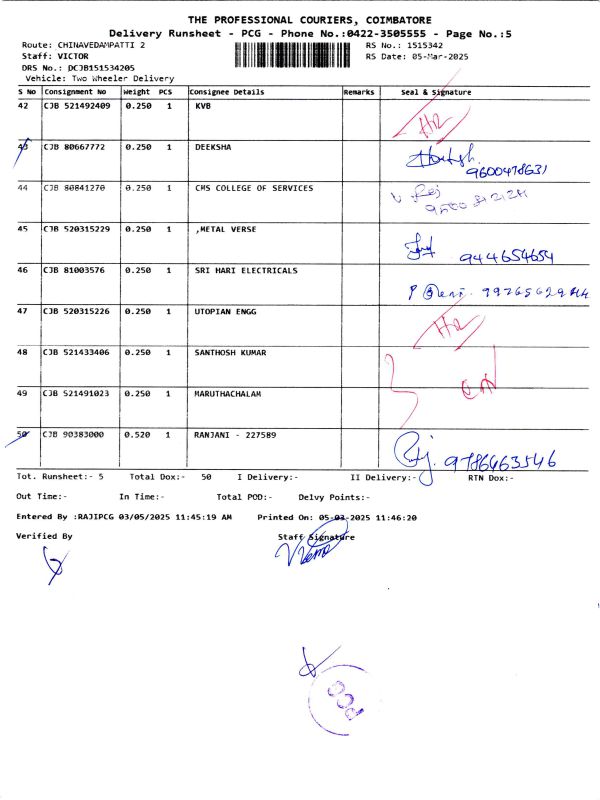 THE PROFESSIONAL COURIERS, COIMBATORE
Delivery Runsheet - PCG - Phone No.:0422-3505555 - Page No.:5
Route: CHINAVEDAMPATTI 2 RS No.: 1515342
Staff: VICTOR RS Date: 05-Mar-2025
DRS No.: DCJB151534205
Vehicle: Two Wheeler Delivery
S No Consignment No Weight PCS Consignee Details Remarks Seal & Signature
42 CJB 521492409 0.250 1 KVB
43 CJB 80667772 0.250 1 DEEKSHA
9600478631
44 CJB 80841270 0.250 1 CMS COLLEGE OF SERVICES
45 CJB 520315229 0.250 1 ,METAL VERSE
944654654
46 CJB 81003576 0.250 1 SRI HARI ELECTRICALS
47 CJB 520315226 0.250 1 UTOPIAN ENGG
48 CJB 521433406 0.250 1 SANTHOSH KUMAR
49 CJB 521491023 0.250 1 MARUTHACHALAM
50 CJB 90383000 0.520 1 RANJANI - 227589
9786463546
Tot. Runsheet:- 5 Total Dox:- 50 I Delivery:- II Delivery:- RTN Dox:-
Out Time:- In Time:- Total POD:- Delvy Points:-
Entered By :RAJIPCG 03/05/2025 11:45:19 AM Printed On: 05-03-2025 11:46:20
Verified By Staff Signature
PCG